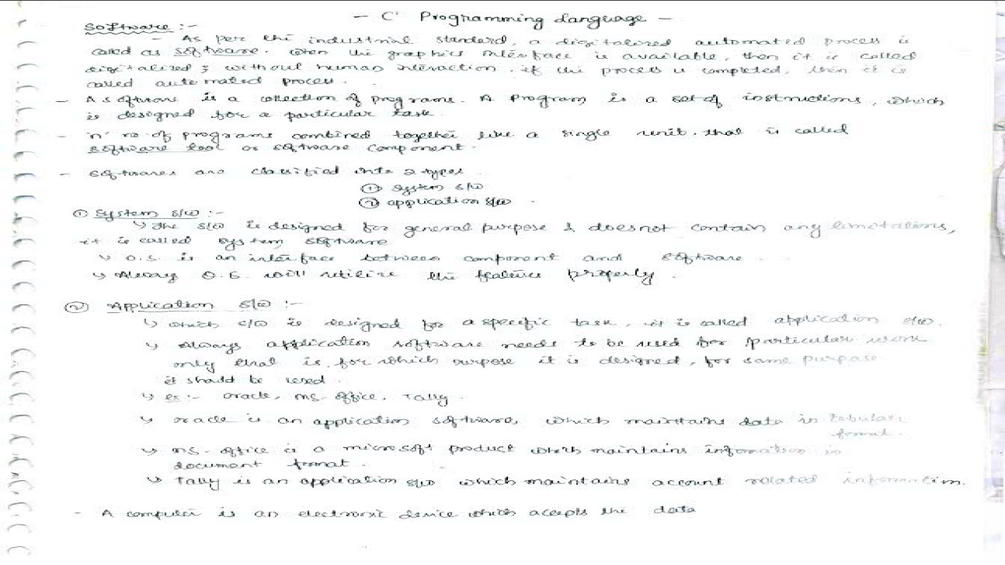 - 'C' Programming Language -
Software :-
- As per the industrial standard, a digitalized automated process is
called as software. When the graphics interface is available, then it is called
digitalized & without human interaction. if the process is completed, then it is
called automated process.
- A software is a collection of programs. A program is a set of instructions, which
is designed for a particular task.
- 'n' no. of programs combined together like a single unit. that is called
software tool or software component.
- Softwares are classified into 2 types.
① System s/w
② application s/w .
① System s/w :-
↳ The s/w is designed for general purpose & doesnot contain any limitations,
it is called system software
↳ O.S. is an interface between component and software.
↳ Always O.S. will utilize the features properly .
② Application s/w :-
↳ which s/w is designed for a specific task, it is called application s/w.
↳ Always application software needs to be used for particular work
only that is, for which purpose it is designed, for same purpose
it should be used.
↳ ex:- oracle, ms-office, Tally.
↳ oracle is an application software, which maintains data in tabular
format.
↳ ms-office is a microsoft product which maintains information in
document format.
↳ Tally is an application s/w which maintains account related information.
- A computer is an electronic device which accepts the data